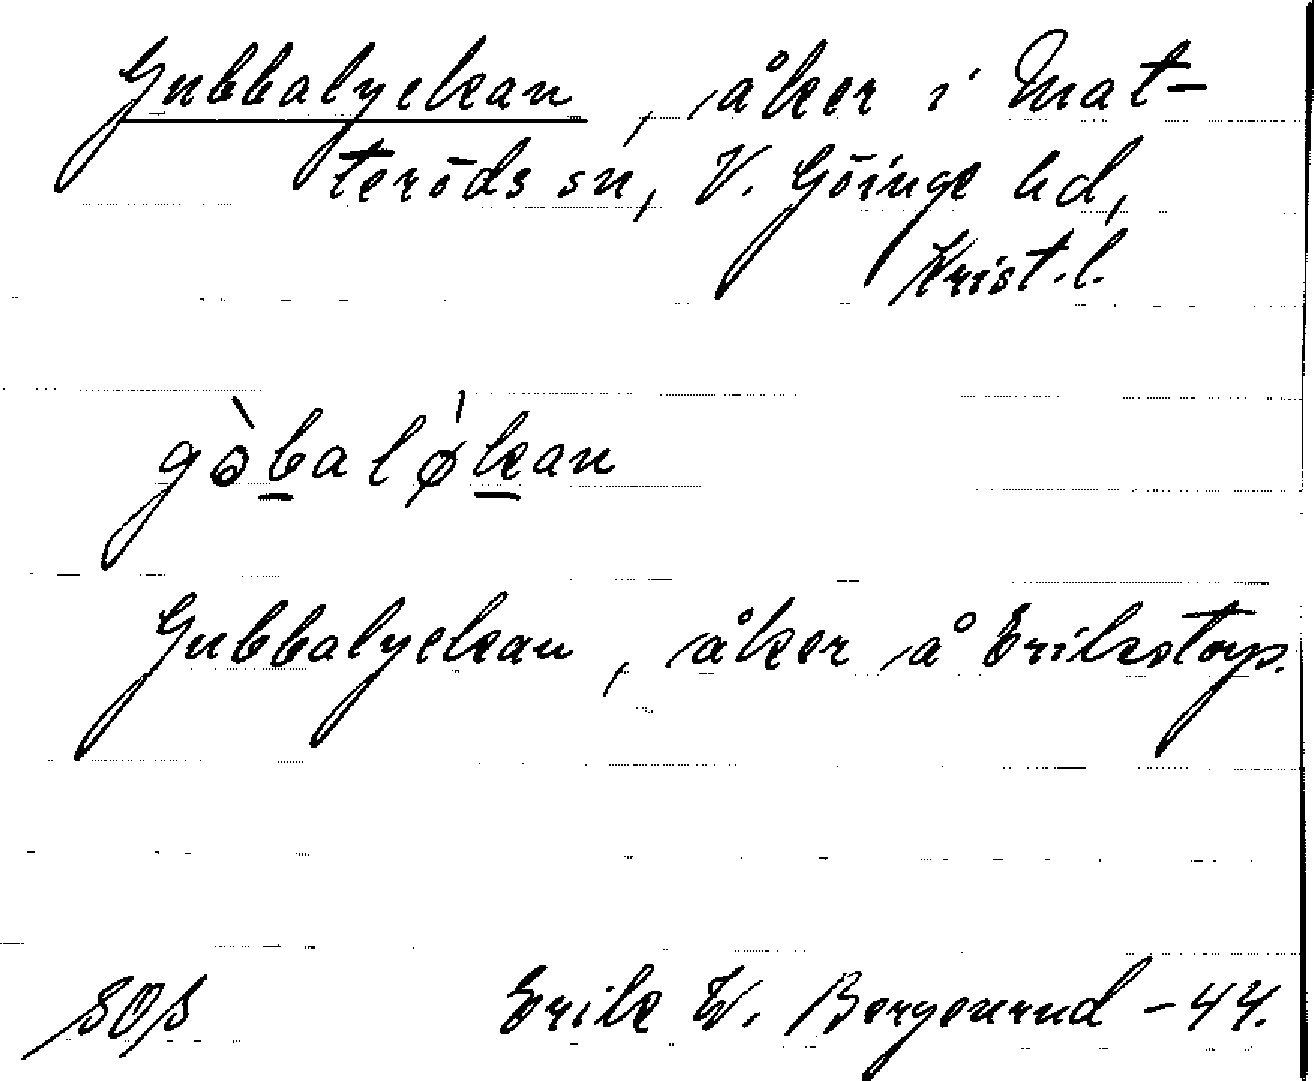 Gubbalyckan, åker i Mat-
teröds sn, V. Göinge hd,
Krist. l.
gòbaló̷kan
Gubbalyckan, åker å Erikstorp.
Erik W. Bergenrud -44.